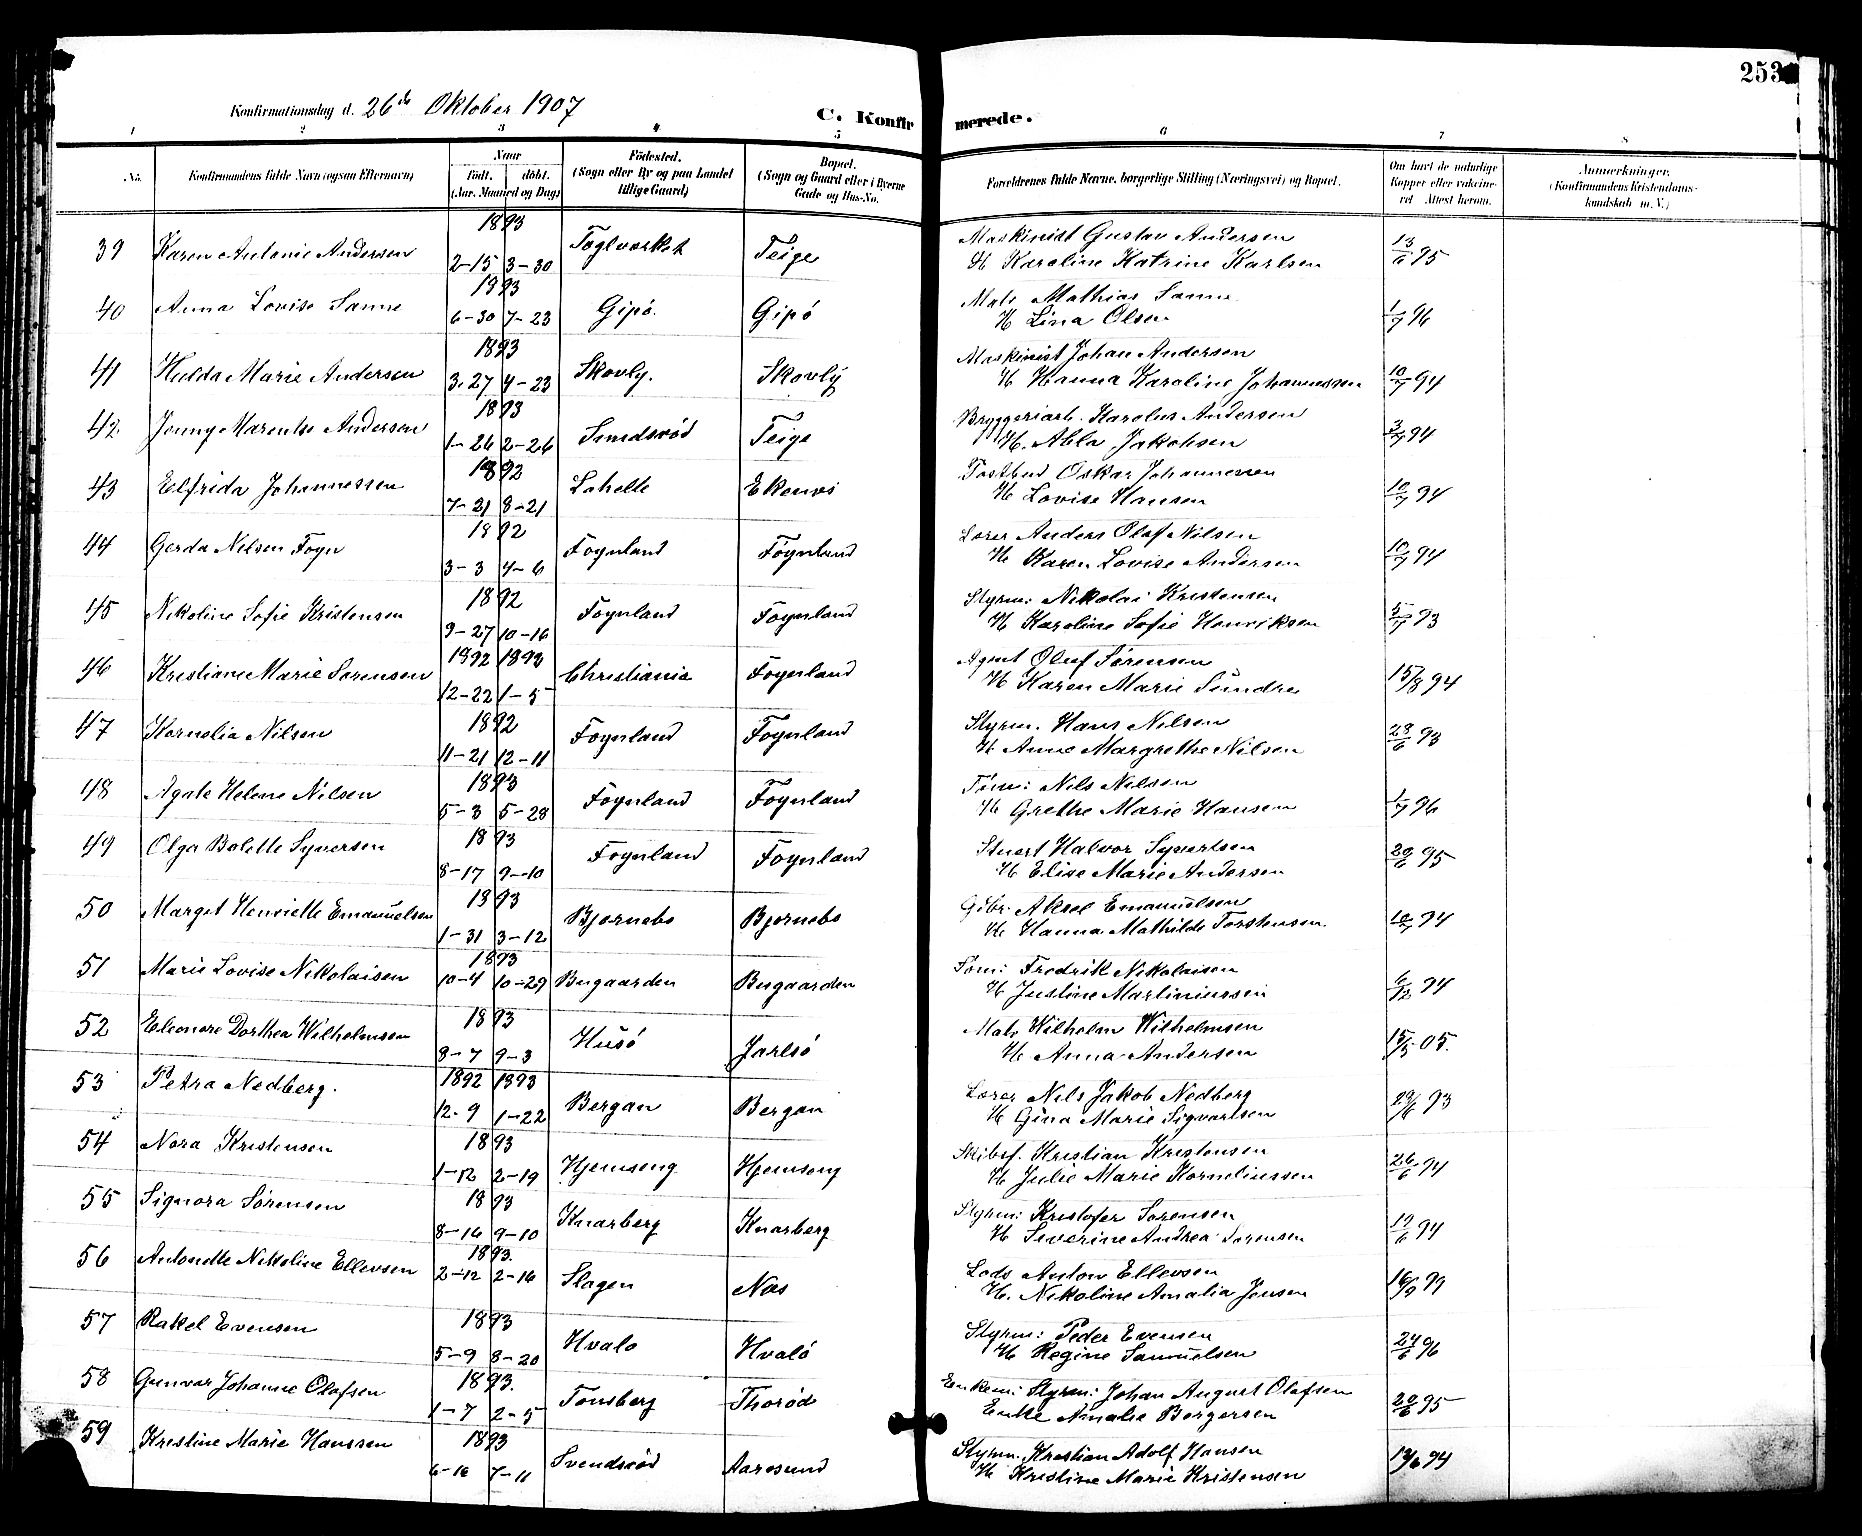 253
Konfirmationsdag d. 26de Oktober 1907
C. Konfirmerede.
1 2 3 4 5 6 7 8
No. Konfirmandens fulde Navn (ogsaa Efternavn) Naar Födt. döbt. (Aar. Maaned og Dag) Födested. (Sogn eller By og paa Landet tillige Gaard) Bopæl. (Sogn og Gaard eller i Byerne Gade og Hus-No. Forældrenes fulde Navne, borgerlige Stilling (Næringsvei) og Bopæl. Om havt de naturlige Kopper eller vaccineret Attest herom. Anmerkninger. (Konfirmandens Kristendomskundskab m. V.)
39 Karen Antonie Andersen 1893 2-15 3-30 Teglverket Teige Maskinist Gustav Andersen
H Karoline Katrine Karlsen 13/6 95
40 Anna Lovise Sanne 1893 6-30 7-23 Gipö. Gipö Matr. Mathias Sanne
H Lina Olsen 1/7 96
41 Hulda Marie Andersen 1893 3-27 4-23 Skovly. Skovly Maskinist Johan Andersen
H Hanna Karoline Johannessen 10/7 94
42 Jenny Marentse Andersen 1893 1-26 2-26 Smidsröd Teige Bryggeriarb. Karolus Andersen
H. Abla Jakobsen 3/7 94
43 Elfrida Johannessen 1892 7-21 8-21 Lahelle Ekenes Postbud Oskar Johannessen
H Lovise Hansen 10/7 94
44 Gerda Nilsen Foyn 1892 3-3 4-6 Foynland Foynland Lærer Anders Olaf Nilsen
H Karen Lovise Andersen 10/7 94
45 Nikoline Sofie Kristensen 1892 9-27 10-16 Foynland Foynland Styrm: Nikolai Kristensen
H Karoline Sofie Henriksen 5/7 93
46 Kristiane Marie Sørensen 1892 1893 12-22 1-5 Christiania Foynland Agent Oluf Sørensen
H Karen Marie Sundre 15/8 94
47 Kornelia Nilsen 1892 11-21 12-11 Foynland Foynland Styrm. Hans Nilsen
H Anne Margrethe Nilsen 28/6 93
48 Agate Helene Nilsen 1893 5-3 5-28 Foynland Foynland Töm: Nils Nilsen
H Grethe Marie Hansen 1/7 96
49 Olga Bolette Syversen 1893 8-17 9-10 Foynland Foynland Stuert Halvor Syvertsen
H Elise Marie Andersen 20/6 95
50 Margit Henriette Emanuelsen 1893 1-31 3-12 Bjørnebo Bjørnebo Gbr. Aksel Emanuelsen
H Hanna Mathilde Torstensen 10/7 94
51 Marie Lovise Nikolaisen 1893 10-4 10-29 Bugaarden Bugaarden Töm: Fredrik Nikolaisen
H Justine Martiniussen 6/12 94
52 Eleonore Dorthea Wilhelmsen 1893 8-7 9-3 Husö Jarlsö Matr Wilhelm Wilhelmsen
H Anna Andersen 15/5 05.
53 Petra Nedberg. 1892 1893 12-9 1-22 Bergan Bergan Lærer Nils Jakob Nedberg
H Gina Marie Sigvartsen 29/6 93
54 Nora Kristensen 1893 1-12 2-19 Hjemseng Hjemseng Skibsf. Kristian Kristensen
H Julie Marie Korneliussen 26/6 94
55 Signora Sørensen 1893 8-16 9-10 Knarberg Knarberg Styrm: Kristofer Sørensen
H Severine Andrea Sørensen 19/6 94
56 Antonette Nikoline Ellevsen 1893. 2-12 2-16 Slagen Næs Lods Anton Ellevsen
H. Nikoline Amalia Jensen 16/9 99
57 Rakel Evensen 1893 5-9 8-20 Hvalø Hvalö Styrm: Peder Evensen
H Regine Samuelsen 24/6 96
58 Gunvor Johanne Olafsen 1893. 1-7 2-5 Tønsberg Thoröd Enkem: Styrm: Johan August Olafsen
Enke Amalie Borgersen 20/6 95
59 Kristine Marie Hanssen 1893 6-16 7-11 Svendsröd Aarøsund Styrm. Kristian Adolf Hansen
H Kristine Marie Kristensen 19/6 94